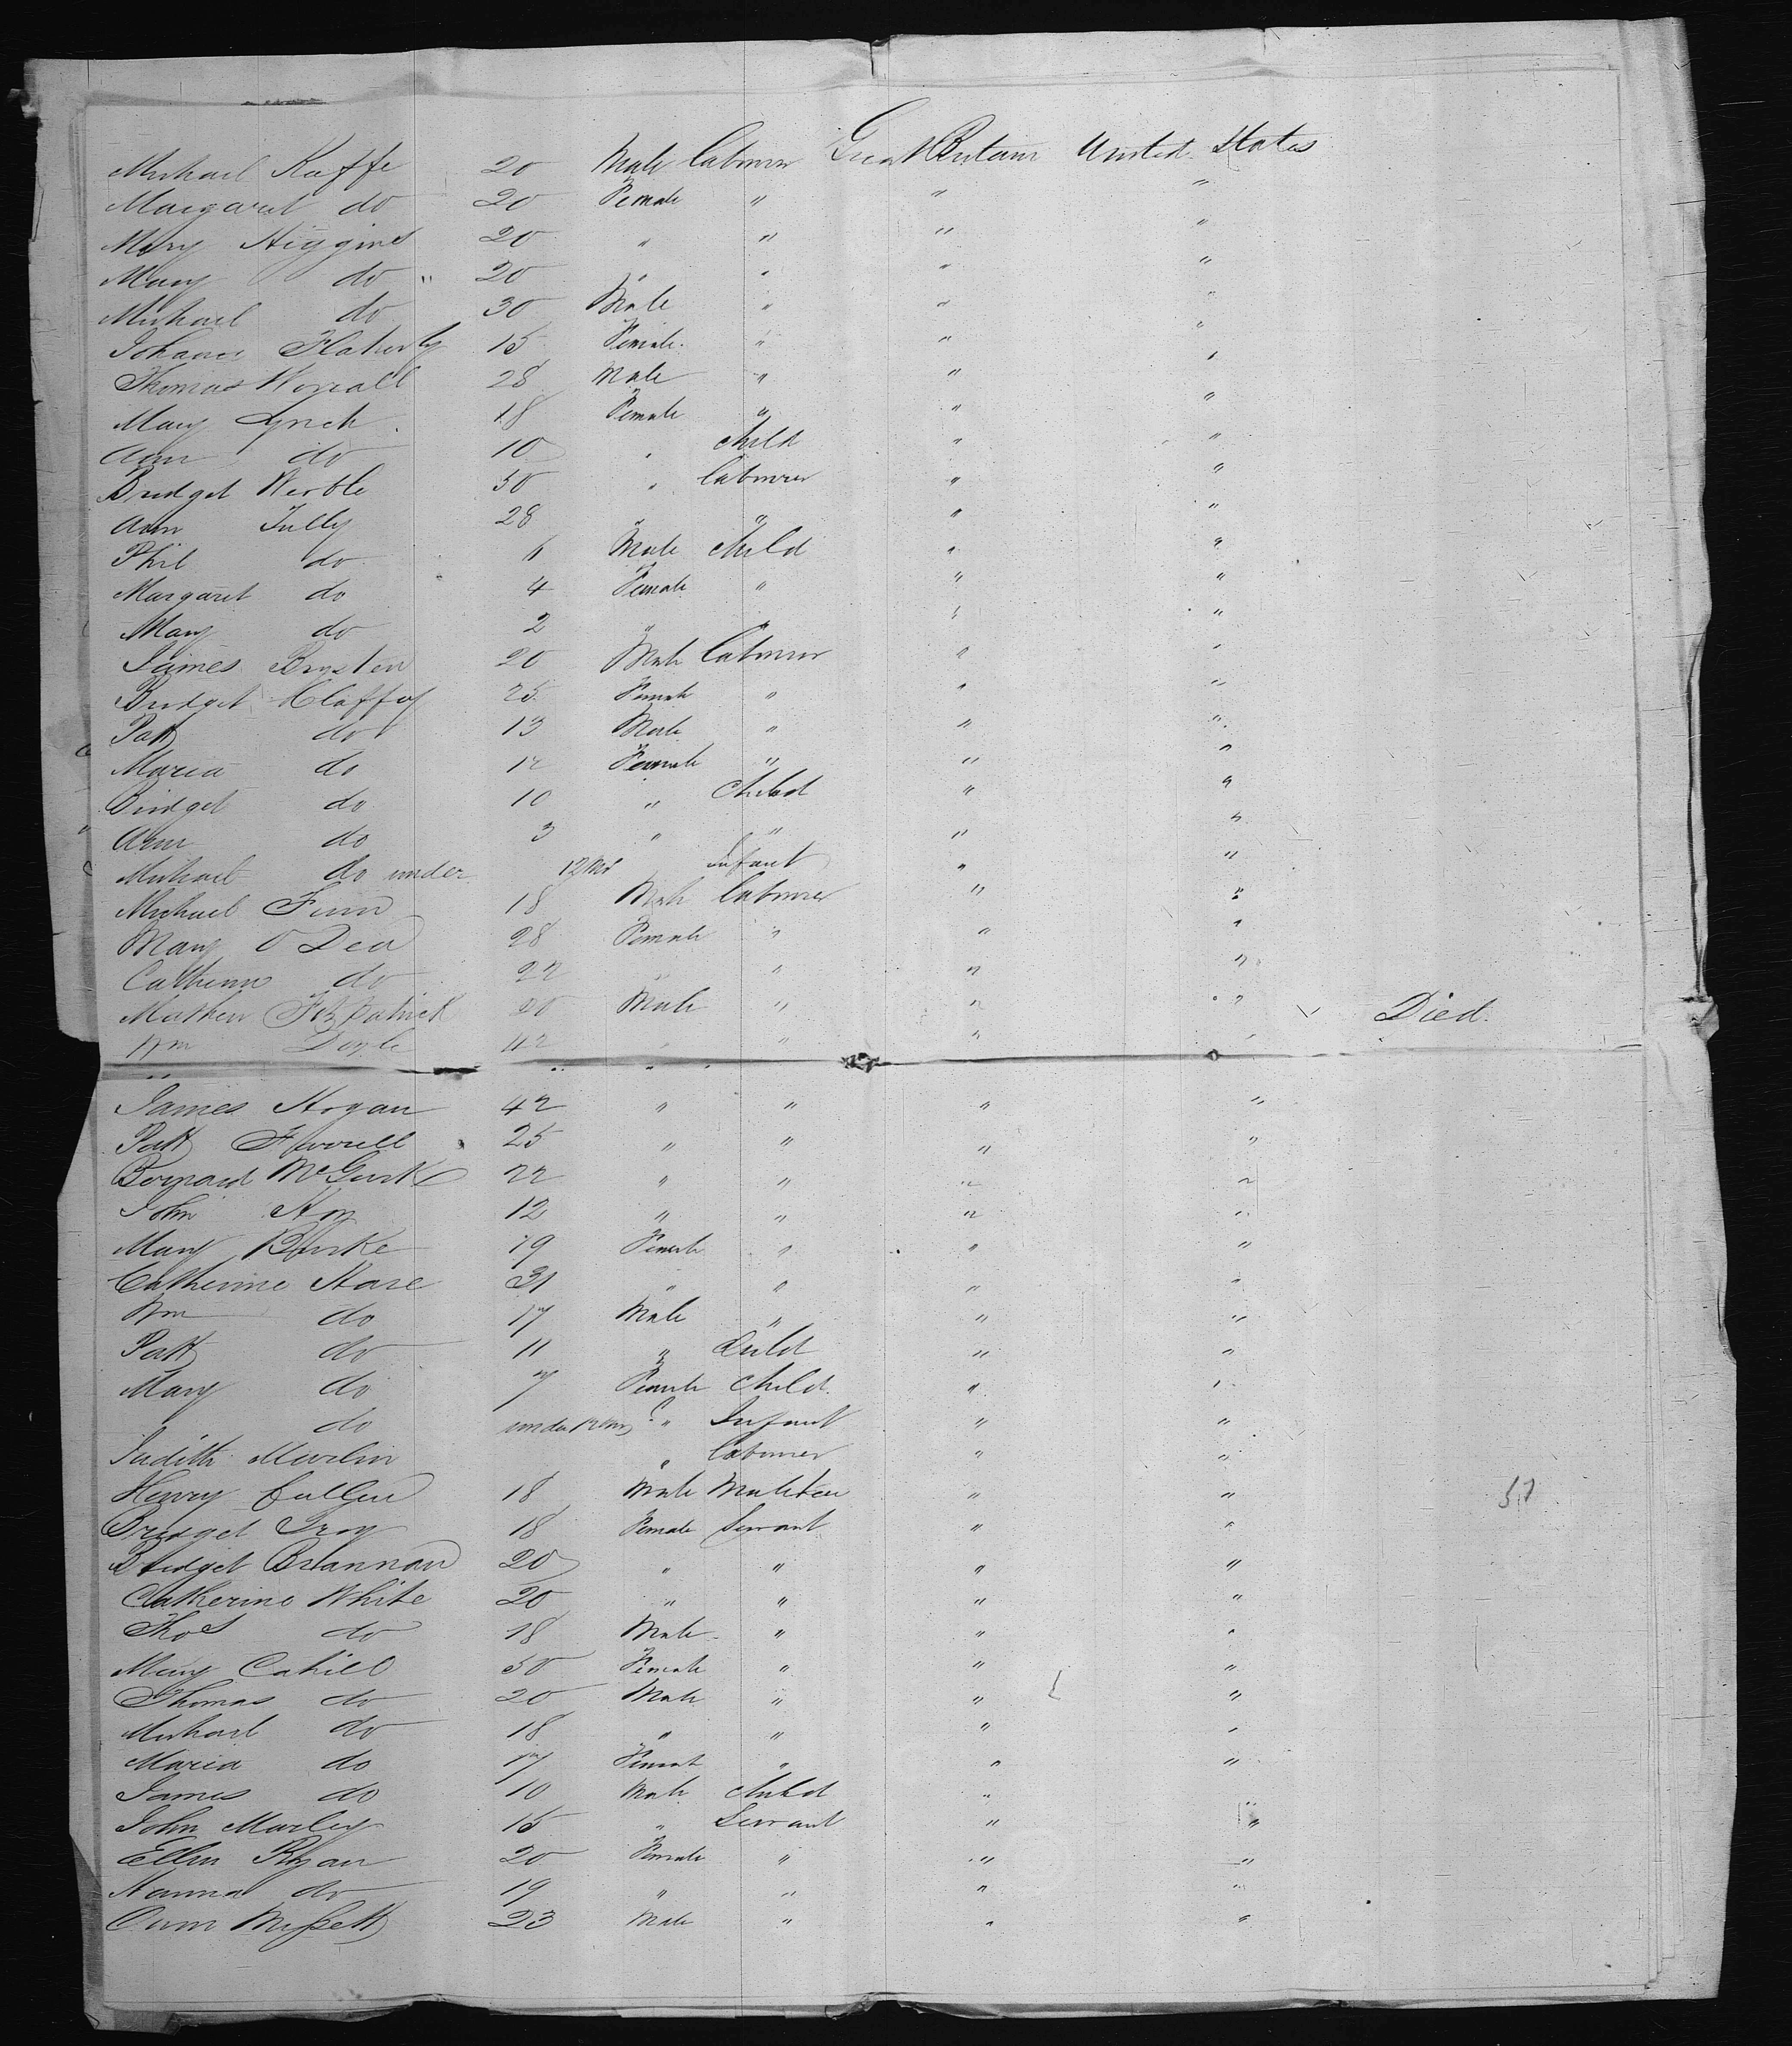 Michael Kaffe 20 Male Labourer Great Britain United States
Margaret do 20 Female " " "
Mary Higgins 20 " " " "
Mary do " 20 " " " "
Michael do 30 Male " " "
Johana Flaherty 15 Female " " "
Thomas Worrall 28 Male " " "
Mary Lynch 18 Female " " "
Ann do 10 " Child " "
Bridget 50 " Labourer " "
Ann Tully 28 " " " "
Phil do 6 Male Child " "
Margaret do 4 Female " " "
Mary do 2 " " " "
James 20 Male Labourer " "
Bridget Claffey 25 Female " " "
Patt do 13 Male " " "
Maria do 12 Female " " "
Bridget do 10 " Child " "
Ann do 3 " " " "
Michael do under 12 Ms Infant " "
Michael Finn 18 Male Labourer " "
Mary O Dea 28 Female " " "
Catherine do 22 " " " "
Mathew Fitzpatrick 20 Male " " " Died.
Wm Doyle 42 " " " "
James Hogan 42 " " " "
Patt Farrell 25 " " " "
Bernard McGurk 22 " " " "
John Hoy 12 " " " "
Mary Burke 19 Female " " "
Catherine Hare 31 " " " "
Wm do 17 Male " " "
Patt do 11 " Child " "
Mary do 7 Female Child " "
do under 12 Ms " Infant " "
Judith " Labourer " "
Henry Cullen 18 Male " "
Bridget Troy 18 Female Servant " "
Bridget Brannan 20 " " " "
Catherine White 20 " " " "
Thos do 18 Male " " "
Mary Cahill 50 Female " " "
Thomas do 20 Male " " "
Michael do 18 " " " "
Maria do 17 Female " " "
James do 10 Male Child " "
John Marley 15 " Servant " "
Ellen Ryan 20 Female " " "
Hanna do 19 " " " "
23 Male " " "